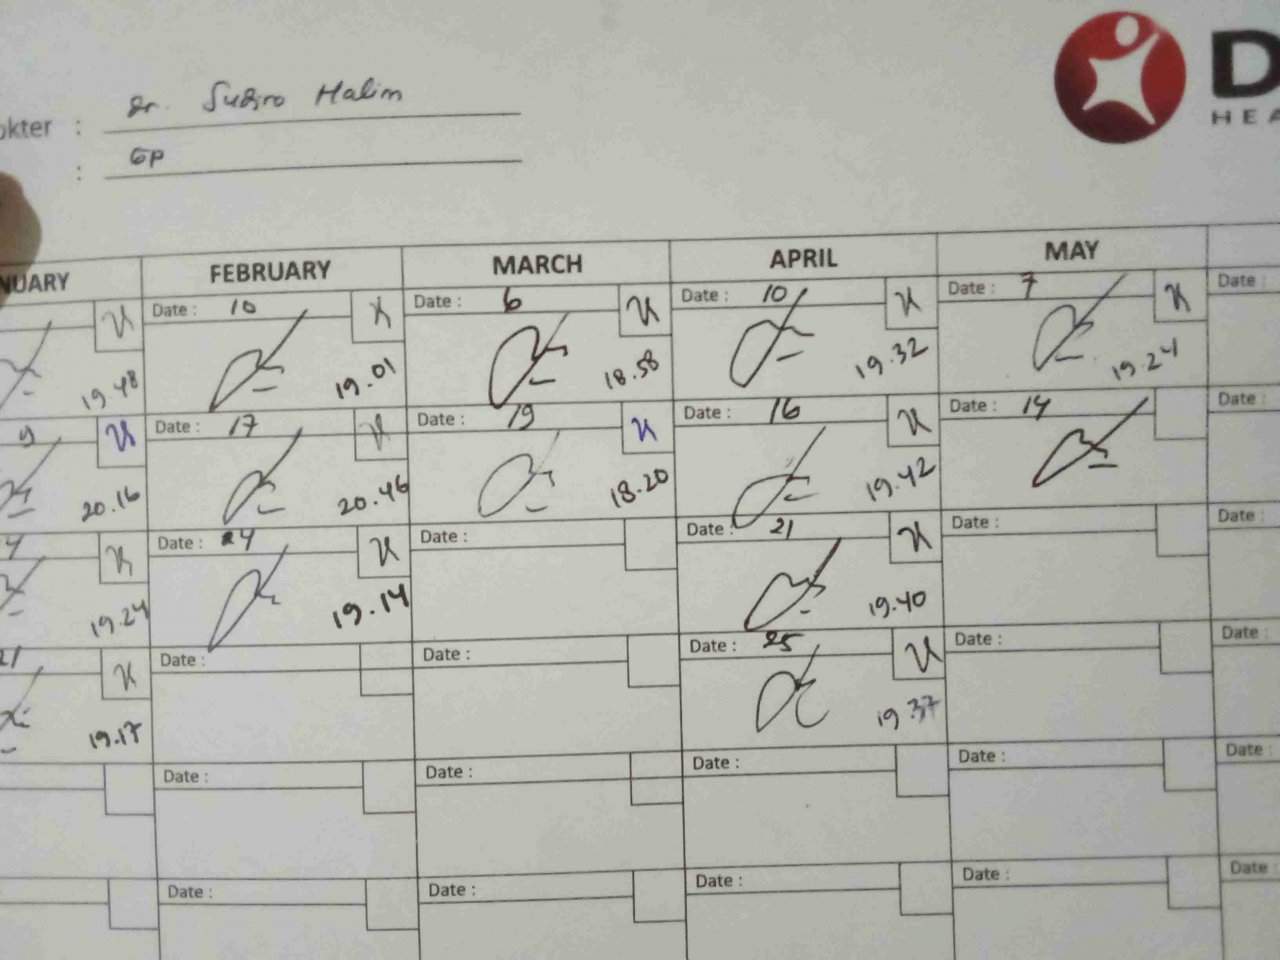 okter : dr. Sudiro Halim
: GP
D
HEA
NUARY FEBRUARY MARCH APRIL MAY
Date : 10 Date : 6 Date : 10 Date : 7 Date :
19.48 19.01 18.58 19.32 19.24
9 Date : 17 Date : 19 Date : 16 Date : 14 Date :
20.16 20.46 18.20 19.42
4 Date : 24 Date : Date : 21 Date : Date :
19.24 19.14 19.40
21 Date : Date : Date : 25 Date : Date :
19.17 19.37
Date : Date : Date : Date : Date :
Date : Date : Date : Date : Date :